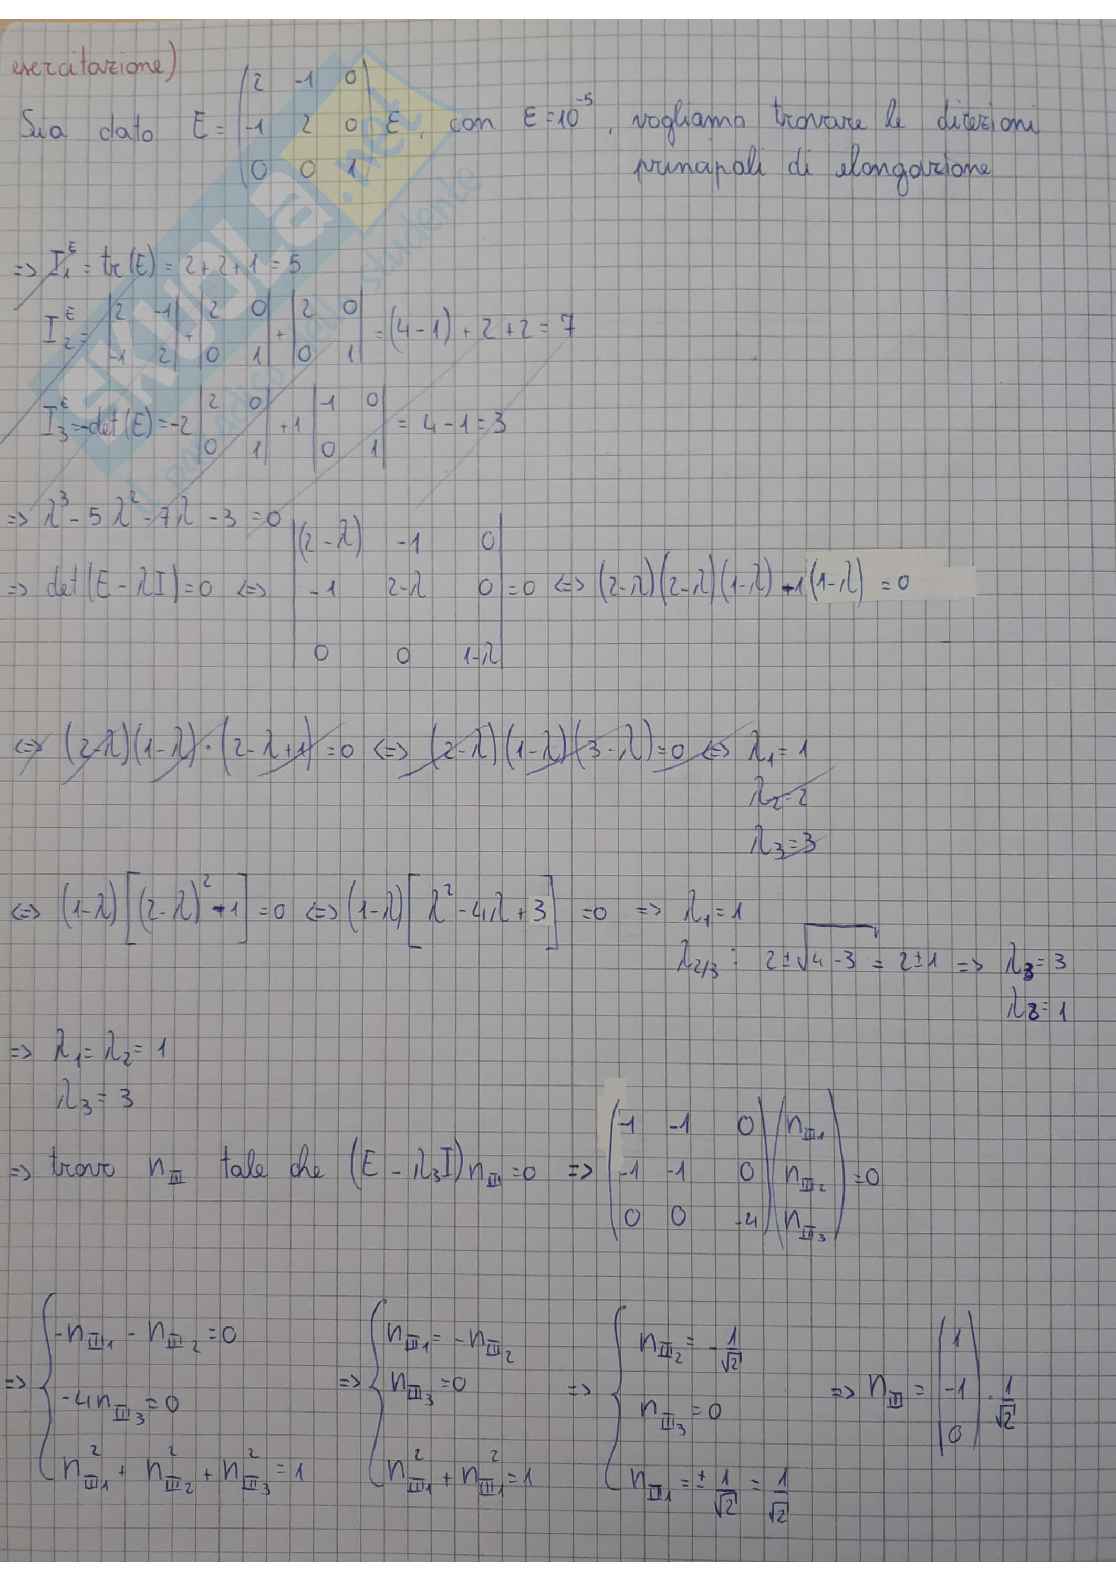 esercitazione)
Sia dato E = (2 -1 0; -1 2 0; 0 0 1) ε, con ε=10^-5, vogliamo trovare le direzioni
principali di elongazione
=> I₁^E = tr(E) = 2+2+1 = 5
I₂^E = |2 -1; -1 2| + |2 0; 0 1| + |2 0; 0 1| = (4-1)+2+2 = 7
I₃^E = -det(E) = -2 |2 0; 0 1| +1 |-1 0; 0 1| = 4-1 = 3
=> λ³ - 5λ² - 7λ - 3 = 0
=> det(E - λI) = 0 <=> |(2-λ) -1 0; -1 2-λ 0; 0 0 1-λ| = 0 <=> (2-λ)(2-λ)(1-λ) -1(1-λ) = 0
<=> (2-λ)(1-λ)·(2-λ+1) = 0 <=> (2-λ)(1-λ)(3-λ) = 0 <=> λ₁ = 1
λ₂ = 2
λ₃ = 3
<=> (1-λ)[(2-λ)² -1] = 0 <=> (1-λ)[λ² - 4λ + 3] = 0 => λ₁ = 1
λ₂/₃ : 2±√(4-3) = 2±1 => λ₃ = 3
λ₂ = 1
=> λ₁ = λ₂ = 1
λ₃ = 3
=> trovo n_III tale che (E - λ₃I) n_III = 0 => (-1 -1 0; -1 -1 0; 0 0 -4)(n_III₁; n_III₂; n_III₃) = 0
=> { -n_III₁ - n_III₂ = 0 => { n_III₁ = -n_III₂ => { n_III₂ = -1/√2 => n_III = (1; -1; 0) · 1/√2
-4n_III₃ = 0 n_III₃ = 0 n_III₃ = 0
n_III₁² + n_III₂² + n_III₃² = 1 n_III₁² + n_III₁² = 1 n_III₁ = ± 1/√2 = 1/√2
SKUOLA.net